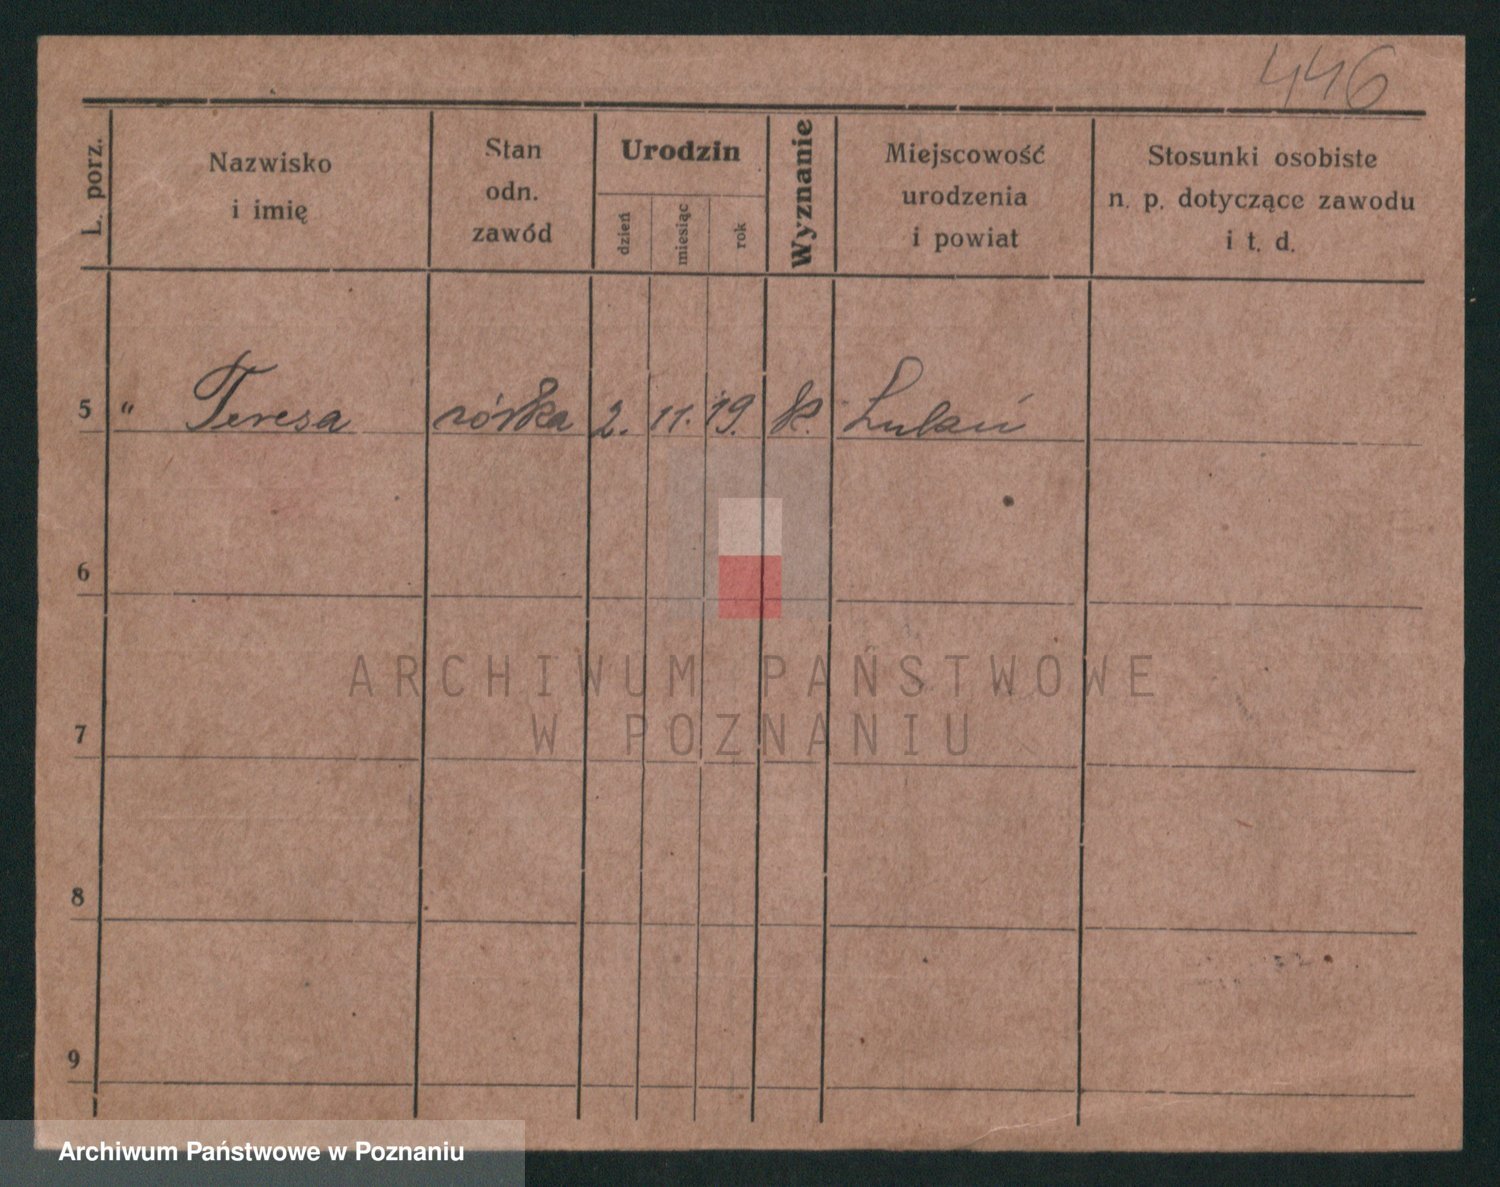 446
L. porz.
Nazwisko
i imię
Stan
odn.
zawód
Urodzin
dzień
miesiąc
rok
Wyznanie
Miejscowość
urodzenia
i powiat
Stosunki osobiste
n. p. dotyczące zawodu
i t. d.
5 " Teresa córka 2. 11. 19. k.
6
7
8
9
ARCHIWUM PAŃSTWOWE
W POZNANIU
Archiwum Państwowe w Poznaniu